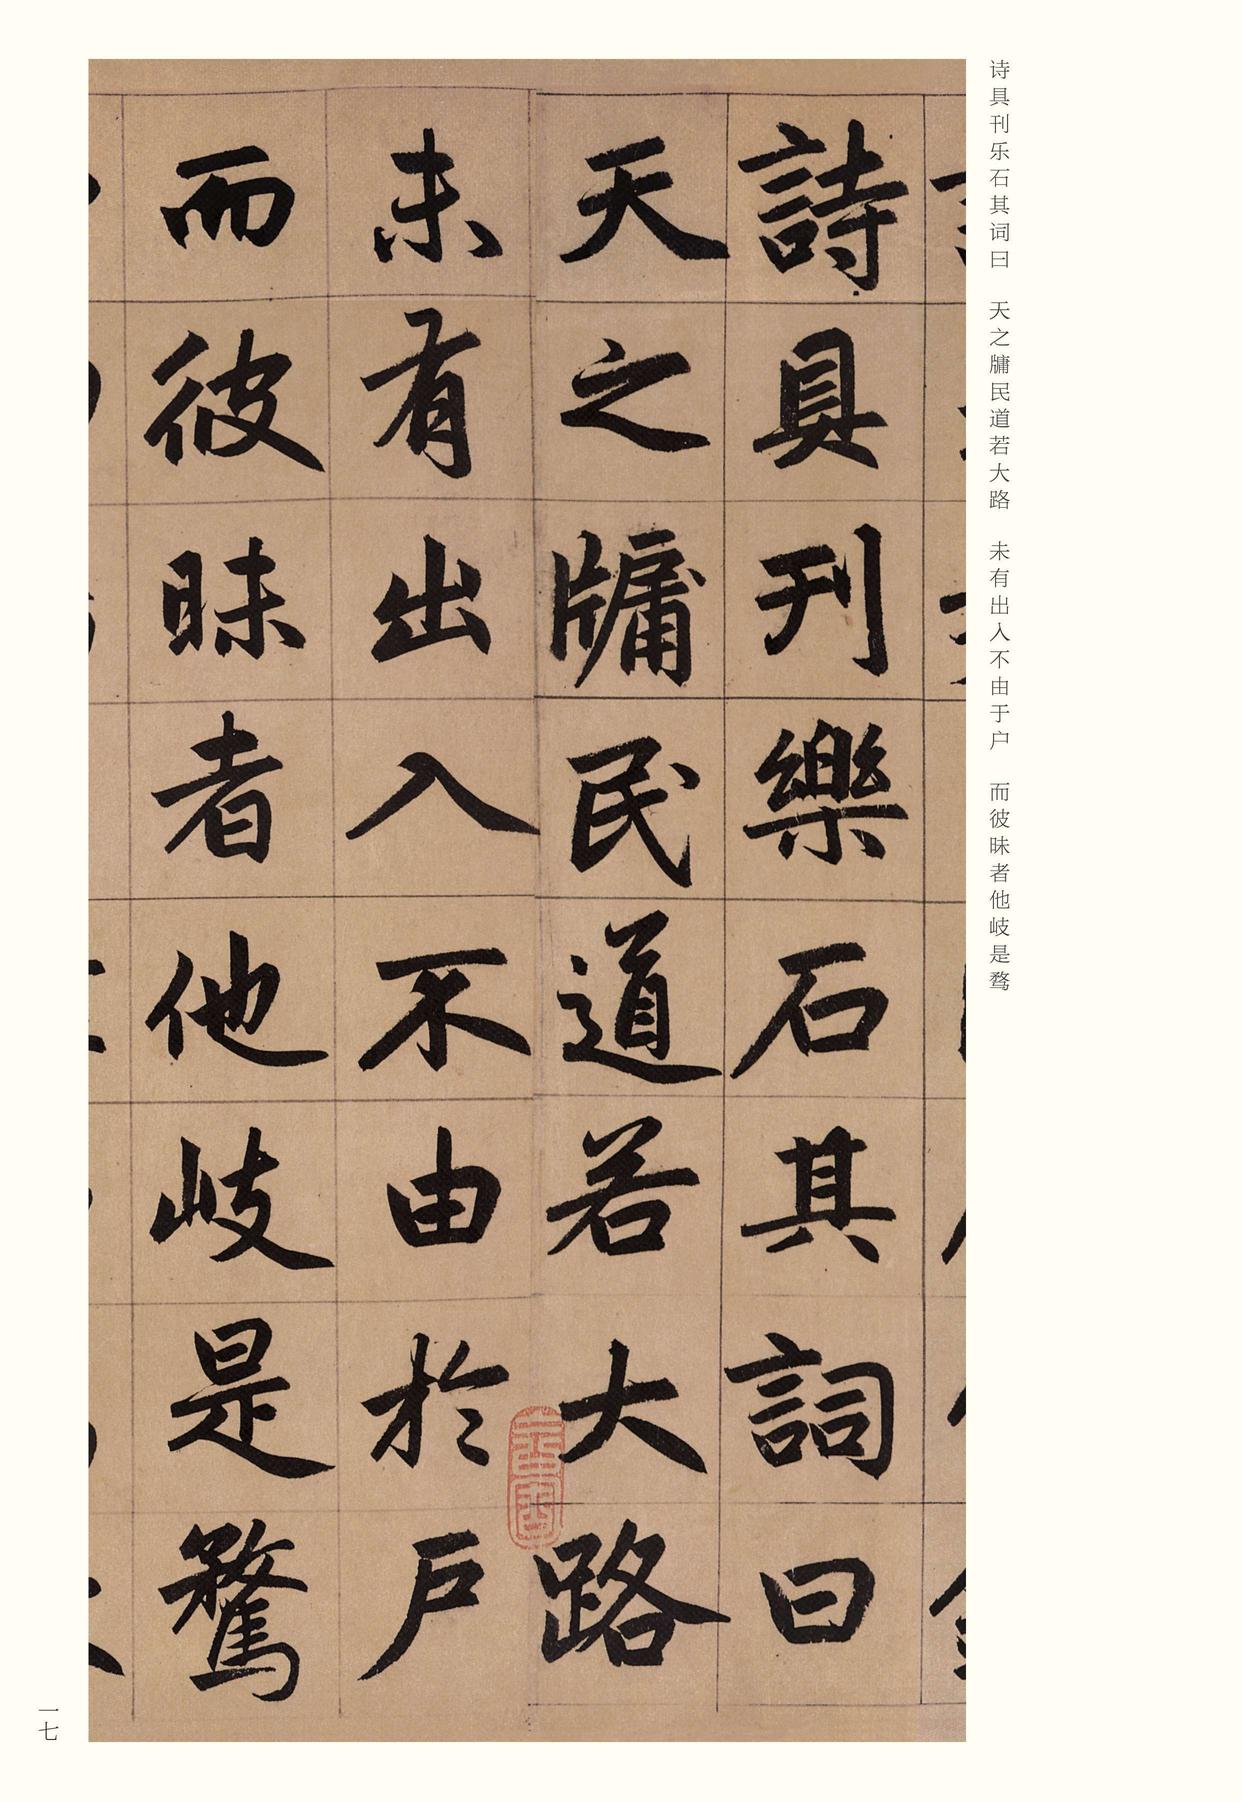 诗具刊乐石其词曰 天之牗民道若大路 未有出入不由于户 而彼昧者他岐是骛
詩具刊樂石其詞曰
天之牗民道若大路
未有出入不由於戶
而彼昧者他岐是騖
一七